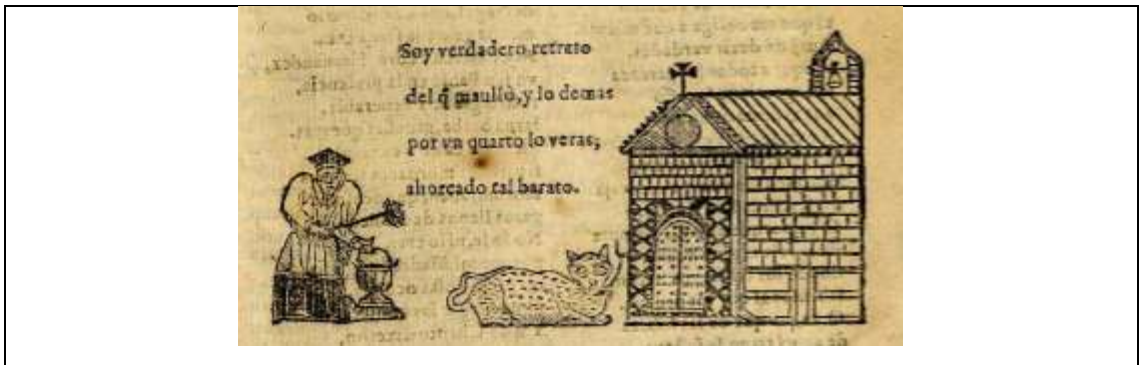 Soy verdadero retrato
del q̃ maullò, y lo demas
por vn quarto lo veras;
ahorcado tal barato.